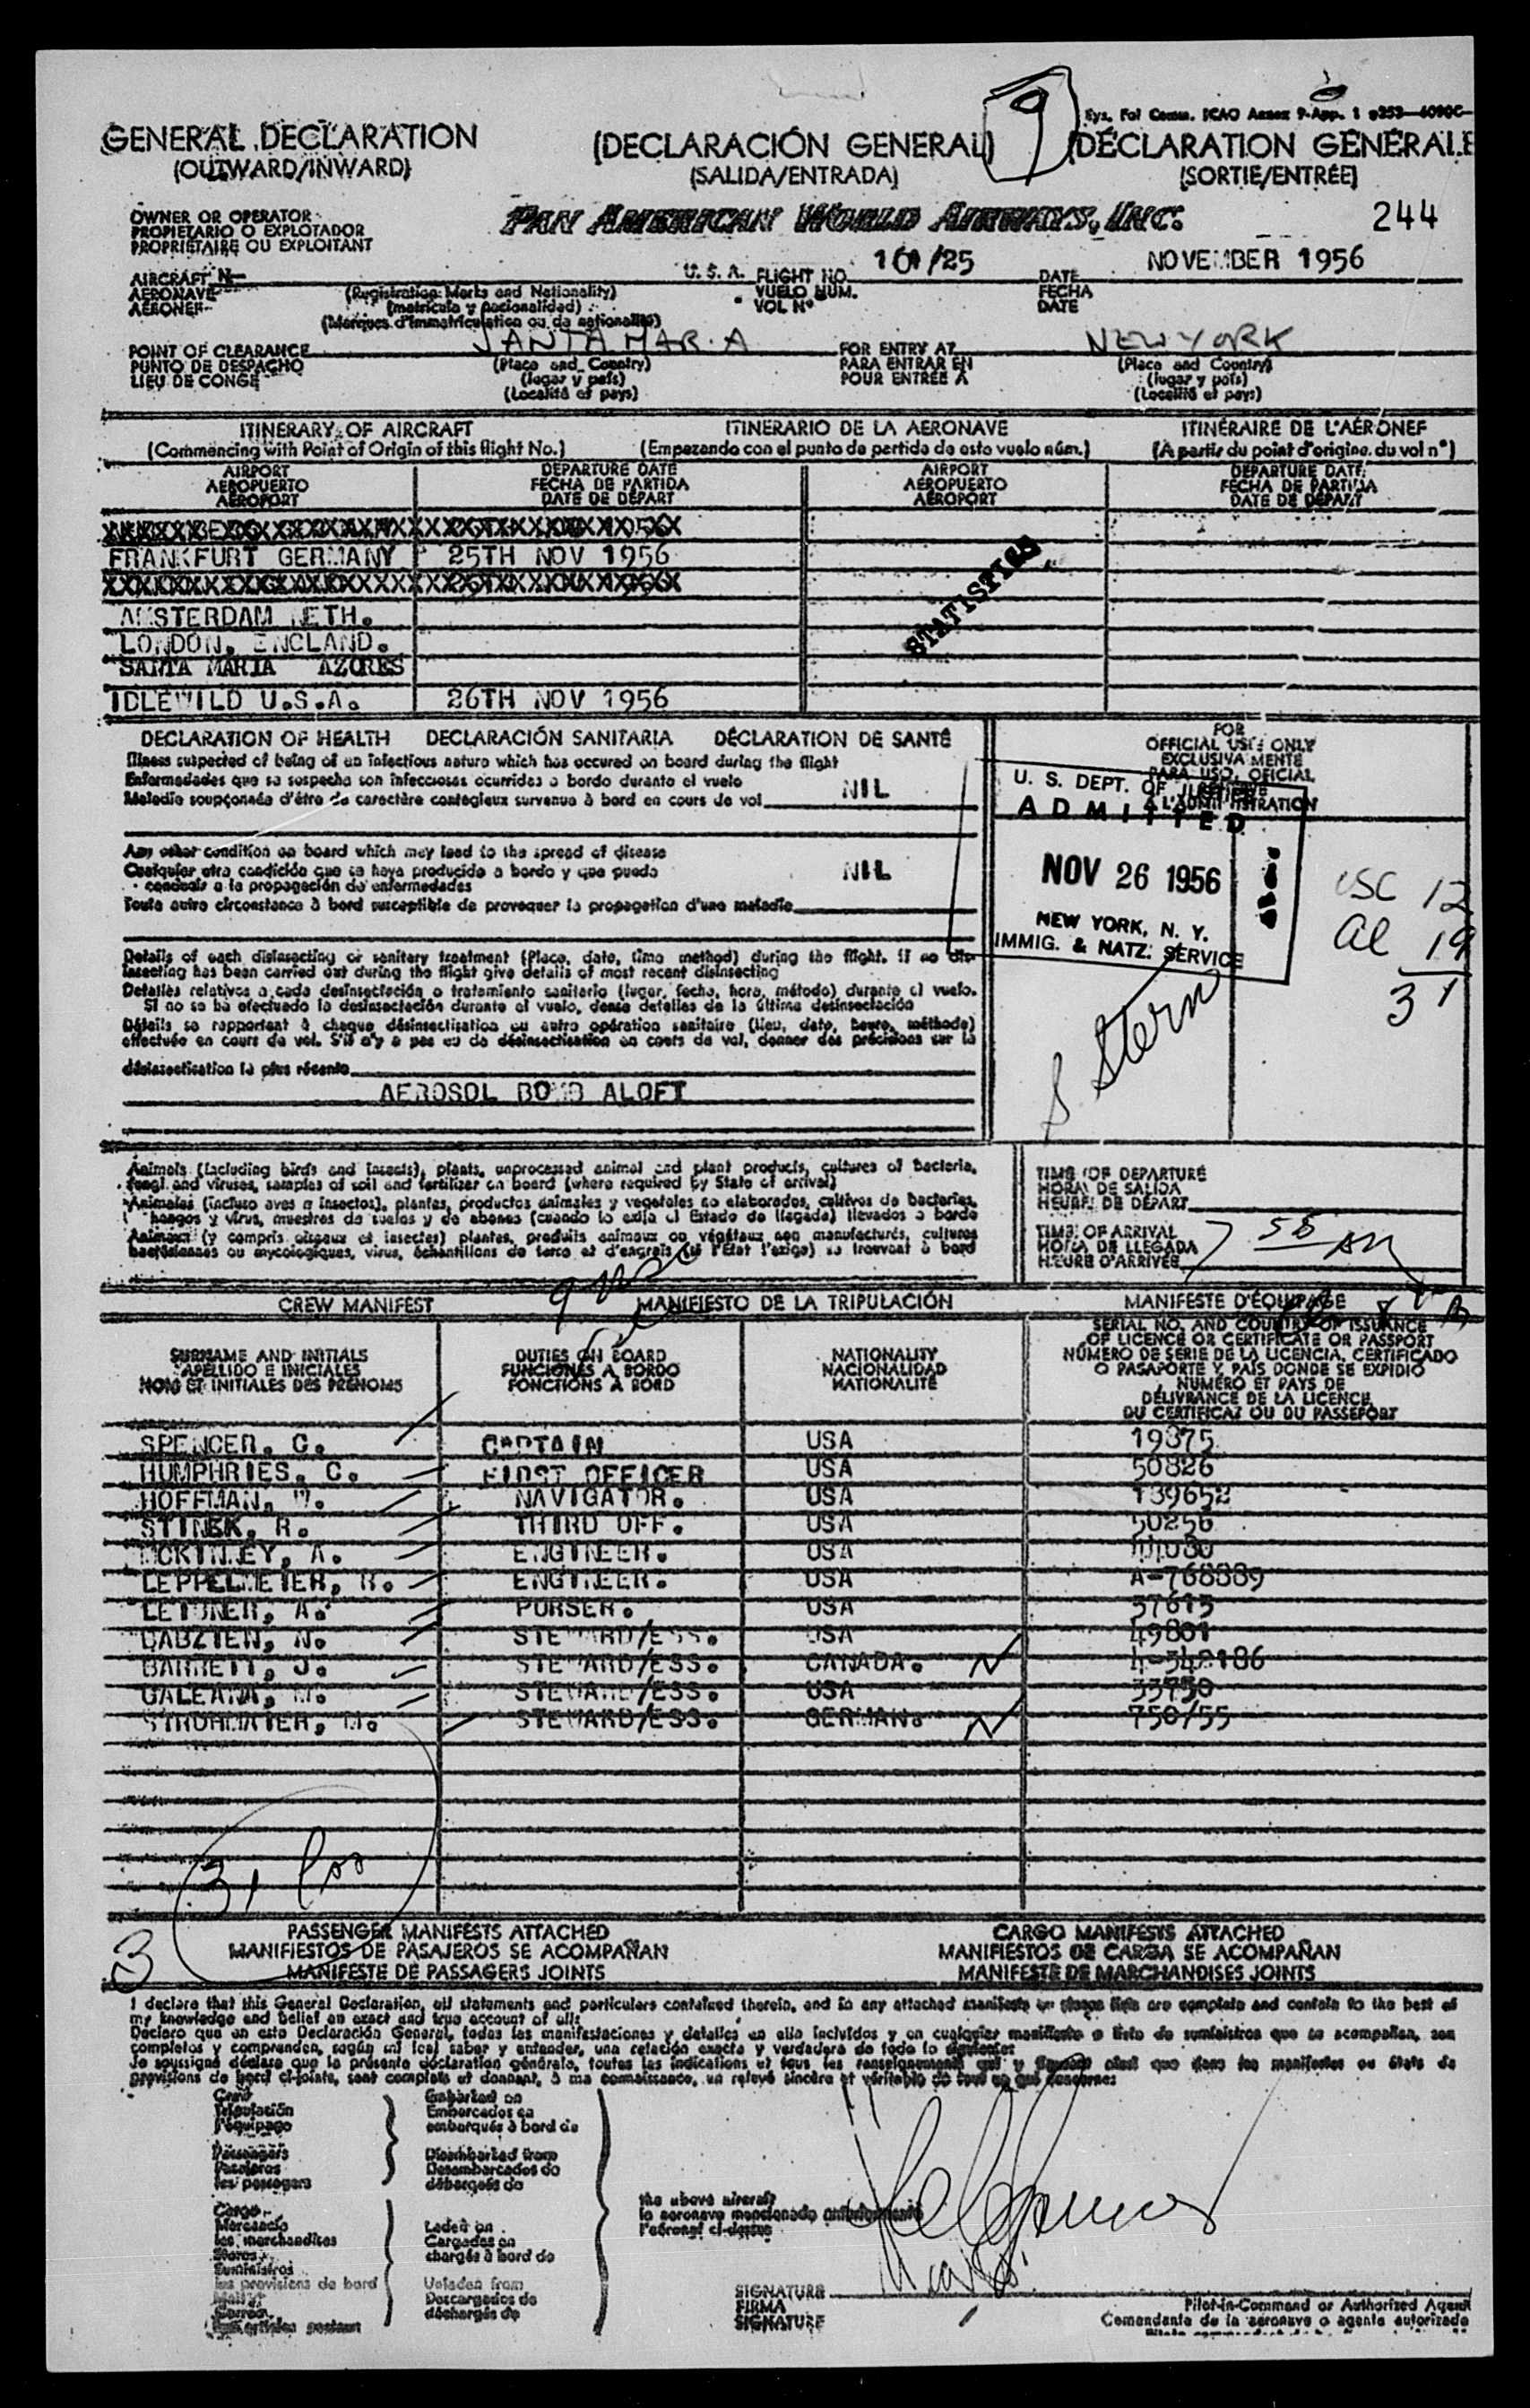 9
Sys. Fol Comm. ICAO Annex 9-App. 1
GENERAL DECLARATION (DECLARACIÓN GENERAL) (DÉCLARATION GÉNÉRALE
(OUTWARD/INWARD) (SALIDA/ENTRADA) (SORTIE/ENTRÉE)
OWNER OR OPERATOR
PROPIETARIO O EXPLOTADOR
PROPRIÉTAIRE OU EXPLOITANT
PAN AMERICAN WORLD AIRWAYS, INC. 244
AIRCRAFT N U. S. A. FLIGHT NO. /25 DATE NOVEMBER 1956
AERONAVE (Registration Marks and Nationality) VUELO NUM. FECHA
AERONEF (matricula y nacionalidad) VOL Nº DATE
(Marques d'immatriculation ou de nationalité)
POINT OF CLEARANCE SANTA MARIA FOR ENTRY AT NEW YORK
PUNTO DE DESPACHO (Place and Country) PARA ENTRAR EN (Place and Country)
LIEU DE CONGE (lugar y país) POUR ENTRÉE A (lugar y país)
(Localité et pays) (Localité et pays)
ITINERARY OF AIRCRAFT ITINERARIO DE LA AERONAVE ITINÉRAIRE DE L'AÉRONEF
(Commencing with Point of Origin of this flight No.) (Empezando con el punto de partida de este vuelo núm.) (À partir du point d'origine du vol nº)
AIRPORT DEPARTURE DATE AIRPORT DEPARTURE DATE
AEROPUERTO FECHA DE PARTIDA AEROPUERTO FECHA DE PARTIDA
AÉROPORT DATE DE DÉPART AÉROPORT DATE DE DÉPART
FRANKFURT GERMANY 25TH NOV 1956
STATISTICS
AMSTERDAM NETH.
LONDON. ENGLAND.
SANTA MARIA AZORES
IDLEWILD U.S.A. 26TH NOV 1956
DECLARATION OF HEALTH DECLARACIÓN SANITARIA DÉCLARATION DE SANTÉ
Illness suspected of being of an infectious nature which has occured on board during the flight
Enfermedades que se sospecha son infecciosas ocurridas a bordo durante el vuelo
Maladie soupçonnée d'être de caractère contagieux survenue à bord en cours de vol NIL
Any other condition on board which may lead to the spread of disease
Cualquier otra condición que se haya producido a bordo y que pueda NIL
conducir a la propagación de enfermedades
Toute autre circonstance à bord susceptible de provoquer la propagation d'une maladie
Details of each disinsecting or sanitary treatment (Place, date, time method) during the flight. If no dis-
insecting has been carried out during the flight give details of most recent disinsecting
Detalles relativos a cada desinsectación o tratamiento sanitario (lugar, fecha, hora, método) durante el vuelo.
Si no se ha efectuado la desinsectación durante el vuelo, dense detalles de la última desinsectación
Détails se rapportant à chaque désinsectisation ou autre opération sanitaire (lieu, date, heure, méthode)
effectuée en cours de vol. S'il n'y a pas eu de désinsectisation en cours de vol, donner des précisions sur la
désinsectisation la plus récente
AEROSOL BOMB ALOFT
FOR
OFFICIAL USE ONLY
EXCLUSIVAMENTE
PARA USO OFICIAL
RÉSERVÉ
À L'ADMINISTRATION
U. S. DEPT. OF JUSTICE
ADMITTED
NOV 26 1956
NEW YORK, N. Y.
IMMIG. & NATZ. SERVICE
USC 12
al 19
31
S Stern
Animals (including birds and insects), plants, unprocessed animal and plant products, cultures of bacteria,
fungi and viruses, samples of soil and fertilizer on board (where required by State of arrival)
Animales (incluso aves e insectos), plantas, productos animales y vegetales no elaborados, cultivos de bacterias,
hongos y virus, muestras de suelos y de abonos (cuando lo exija el Estado de llegada) llevados a bordo
Animaux (y compris oiseaux et insectes) plantes, produits animaux ou végétaux non manufacturés, cultures
bactériennes ou mycologiques, virus, échantillons de terre et d'engrais (si l'État l'exige) se trouvant à bord
TIME OF DEPARTURE
HORA DE SALIDA
HEURE DE DÉPART
TIME OF ARRIVAL
HORA DE LLEGADA 7 55 AM
HEURE D'ARRIVÉE
CREW MANIFEST MANIFIESTO DE LA TRIPULACIÓN MANIFESTE D'ÉQUIPAGE
SURNAME AND INITIALS DUTIES ON BOARD NATIONALITY
APELLIDO E INICIALES FUNCIONES A BORDO NACIONALIDAD
NOM ET INITIALES DES PRÉNOMS FONCTIONS À BORD NATIONALITÉ
SERIAL NO. AND COUNTRY OF ISSUANCE
OF LICENCE OR CERTIFICATE OR PASSPORT
NÚMERO DE SERIE DE LA LICENCIA, CERTIFICADO
O PASAPORTE Y PAÍS DONDE SE EXPIDIÓ
NUMÉRO ET PAYS DE
DÉLIVRANCE DE LA LICENCE
DU CERTIFICAT OU DU PASSEPORT
SPENCER. C. CAPTAIN USA 19375
HUMPHRIES. C. FIRST OFFICER USA 50826
HOFFMAN, W. NAVIGATOR. USA 139652
STINEK, R. THIRD OFF. USA 50256
MCKINLEY, A. ENGINEER. USA
LEPPELMEIER, R. ENGINEER. USA A-768889
LEITNER, A. PURSER. USA 57615
DABZIEN, N. STEWARD/ESS. USA 49801
BARRETT, J. STEWARD/ESS. CANADA. 4-342186
GALEANA, M. STEWARD/ESS. USA 33750
STROHMAIER, M. STEWARD/ESS. GERMAN. 750/55
31
3
PASSENGER MANIFESTS ATTACHED CARGO MANIFESTS ATTACHED
MANIFIESTOS DE PASAJEROS SE ACOMPAÑAN MANIFIESTOS DE CARGA SE ACOMPAÑAN
MANIFESTE DE PASSAGERS JOINTS MANIFESTE DE MARCHANDISES JOINTS
I declare that this General Declaration, all statements and particulars contained therein, and in any attached manifests or stores lists are complete and contain to the best of
my knowledge and belief an exact and true account of all:
Declaro que en esta Declaración General, todas las manifestaciones y detalles en ella incluídos y en cualquier manifiesto o lista de suministros que se acompañan, son
completos y comprenden, según mi leal saber y entender, una relación exacta y verdadera de todo lo siguiente:
Je soussigné déclare que la présente déclaration générale, toutes les indications et tous les renseignements qui y figurent ainsi que dans les manifestes ou états de
provisions de bord ci-joints, sont complets et donnent, à ma connaissance, un relevé sincère et véritable de tout ce qui concerne:
Crew Embarked on
Tripulación Embarcados en
l'équipage embarqués à bord de
Passengers Disembarked from
Pasajeros Desembarcados de
les passagers débarqués de
the above aircraft
la aeronave mencionada anteriormente
l'aéronef ci-dessus
Cargo
Mercancía Laden on
les marchandises Cargadas en
Stores chargés à bord de
Suministros
les provisions de bord Unladen from
Descargados de
Correo déchargés de
SIGNATURE
FIRMA
SIGNATURE
Pilot-in-Command or Authorized Agent
Comandante de la aeronave o agente autorizado